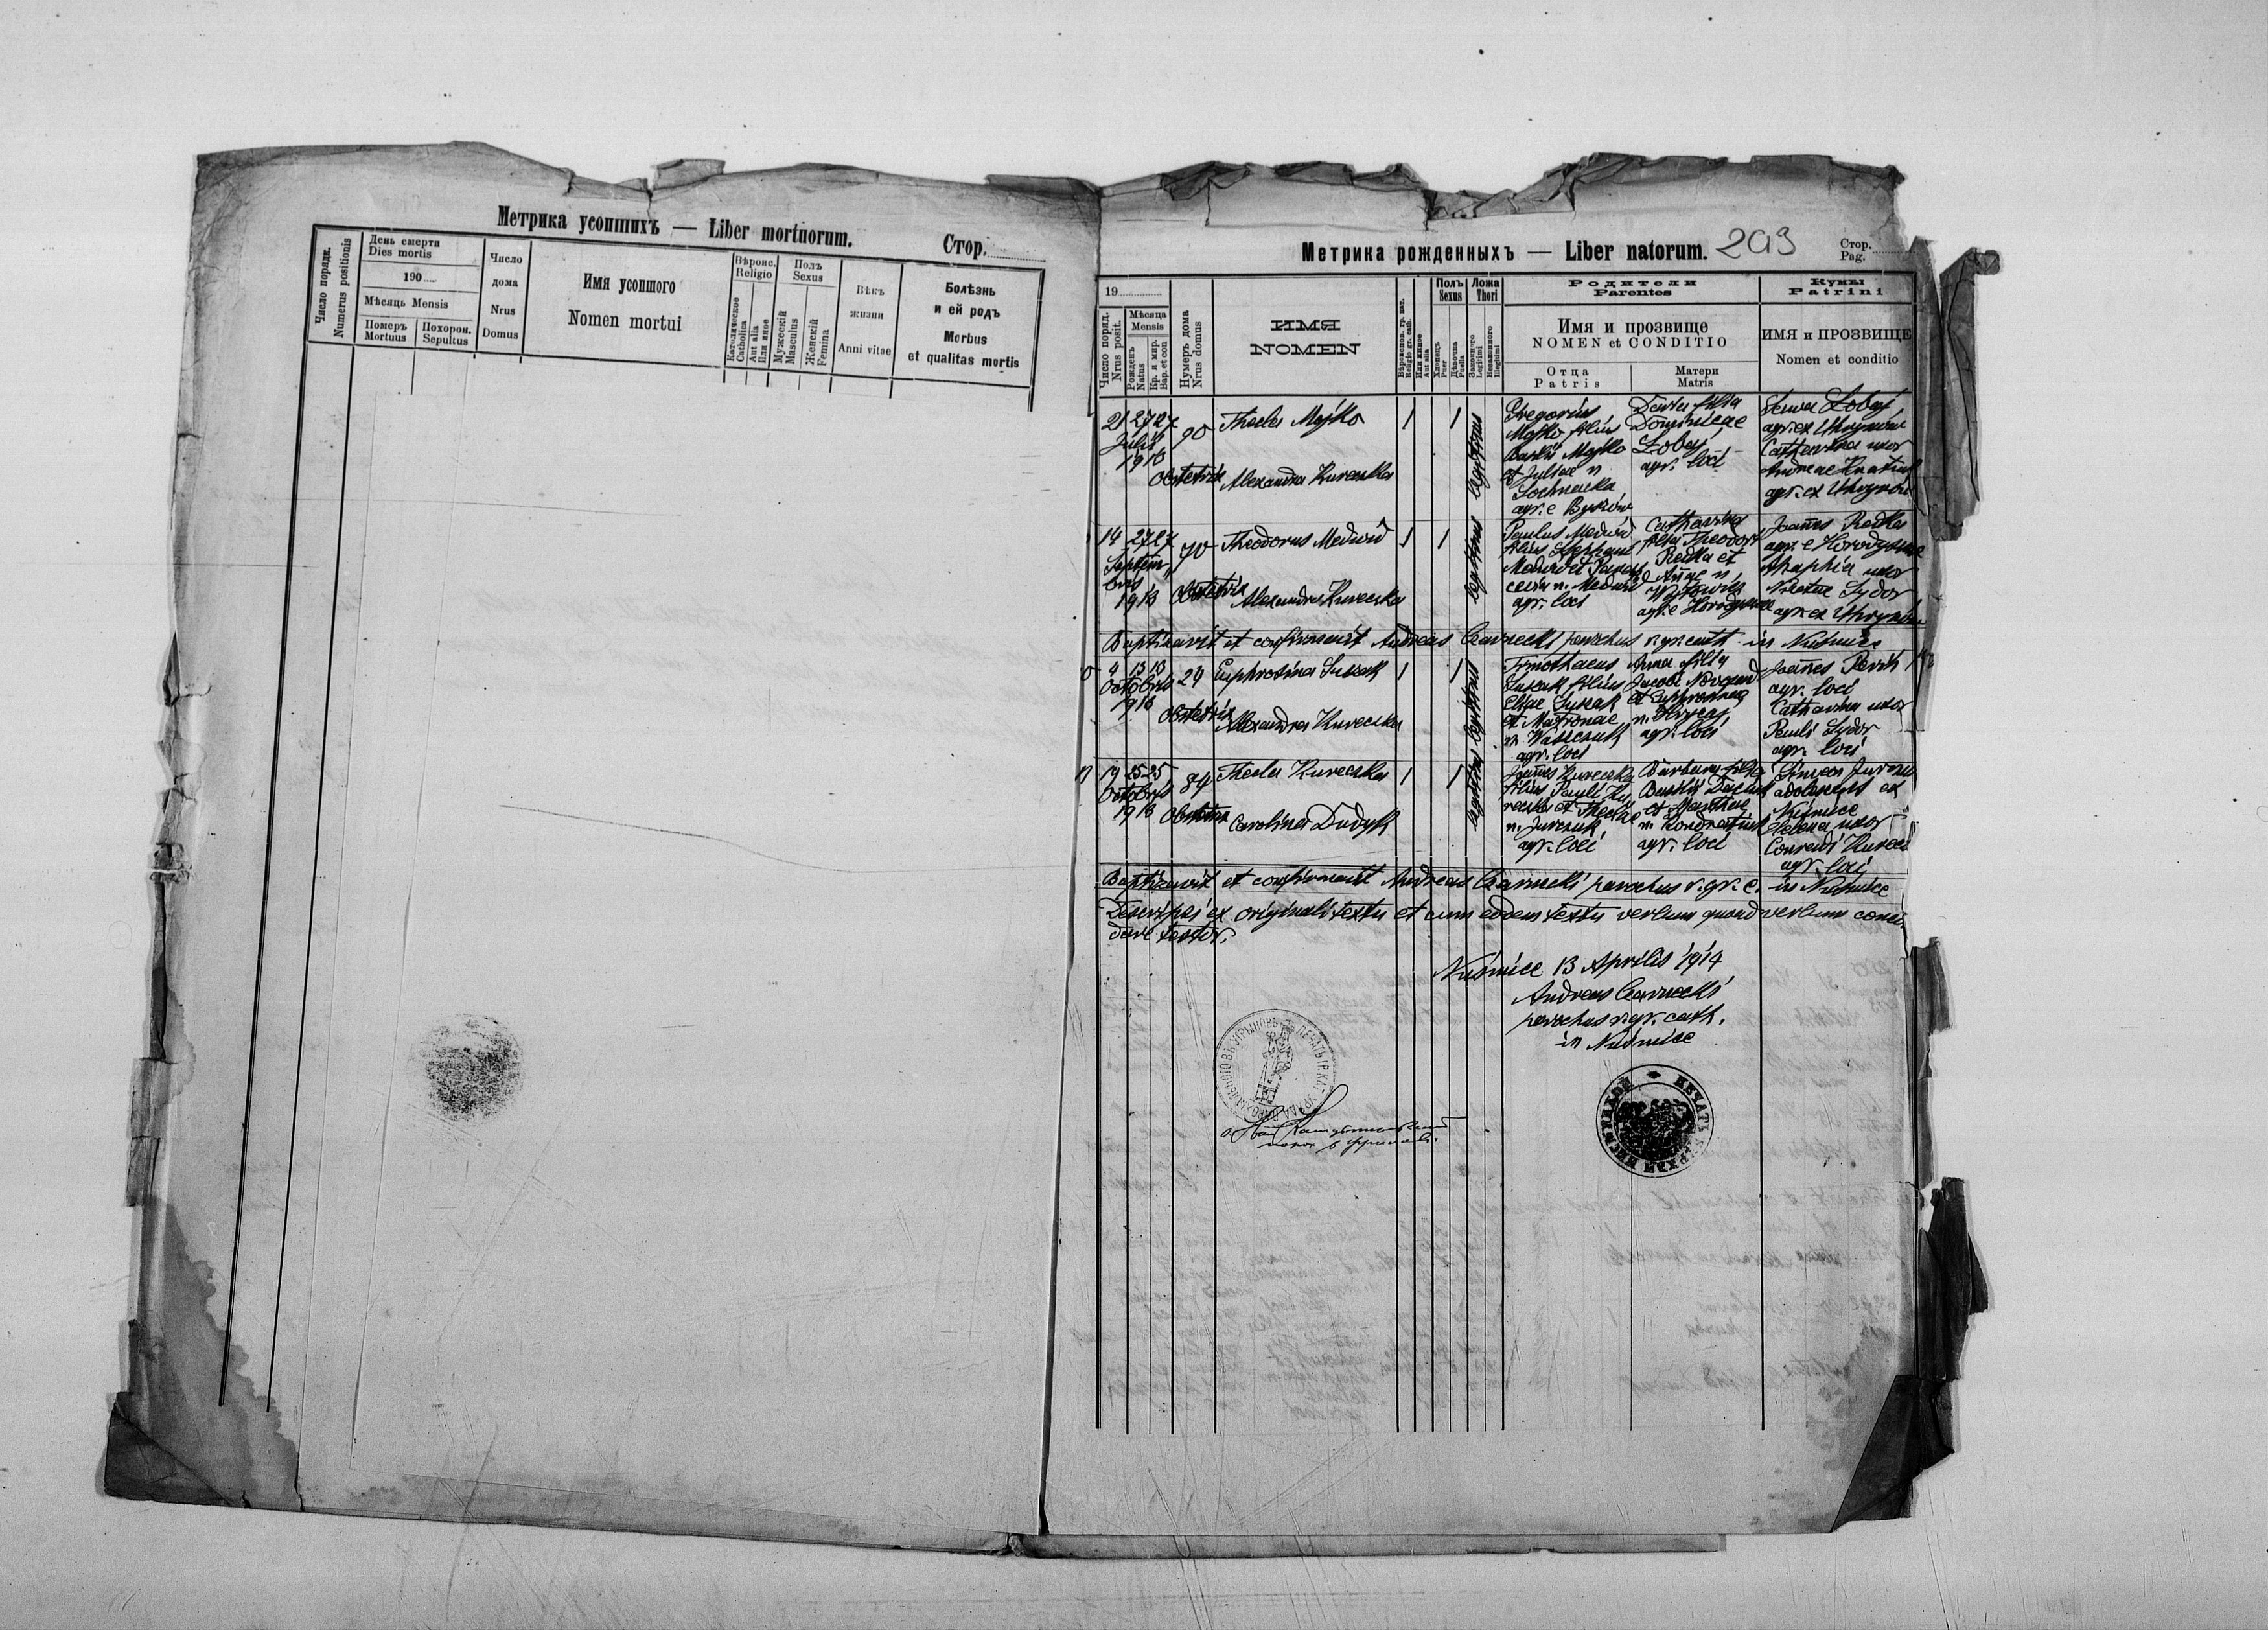 Метрика усопшихъ — Liber mortuorum.
Стор.
Число порядк.
Numerus positionis
День смерти
Dies mortis
190
Мѣсяць Mensis
Померъ
Mortuus
Похорон.
Sepultus
Число
дома
Nrus
Domus
Имя усопшого
Nomen mortui
Вѣроис.
Religio
Католическое
Catholica
Aut alia
Или иное
Полъ
Sexus
Мужескій
Masculus
Женскій
Femina
Вѣкъ
жизни
Anni vitae
Болѣзнь
и ей родъ
Morbus
et qualitas mortis
Метрика рожденныхъ — Liber natorum. 293
Стор.
Pag.
19
Число поряд.
Nrus posit.
Мѣсяца
Mensis
Рожденъ
Natus
Кр. и мир.
Bap. et con
Нумеръ дома
Nrus domus
ИМЯ
NOMEN
Religio gr. cath.
Или иное
Aut alia
Полъ
Sexus
Хлопецъ
Puer
Дѣвочка
Puella
Ложа
Thori
Законного
Legitimi
Незаконного
Illegitimi
Родители
Parentes
Имя и прозвище
NOMEN et CONDITIO
Отца
Patris
Матери
Matris
Кумы
Patrini
ИМЯ и ПРОЗВИЩЕ
Nomen et conditio
21 27 27
Julii
1913
90
Thecla Mojko
Obstetrix Alexandra Kurecska
1 1
legitimus
Gregorius
Mojko filius
Basilii Mojko
et Juliae n
Sochnacka
agr. e Byków
Daria filia
Dominicae
Lobaj
agr. loci
Lobaj
agr. ex Uhrynów
Catharina uxor
Andreae
agr. ex Uhrynów
14 27 27
Septem
bris
1913
70
Theodorus Medwid
Obstetrix
Alexandra Kurecska
1 1
legitimus
Paulus Medwid
filius Stephani
Medwid et
n. Medwid
agr. loci
Catharina
filia Theodori
Redka et
Annae n.
Wojtowicz
agr. e
Joannes Redka
agr. e
uxor
Sydor
agr. ex Uhrynów
Baptizavit et confirmavit Andreas Czarnecki parochus r. gr. cath. in Nuśmice
4 13 13
Octobris
1913
29
Euphrosina Suszak
Obstetrix
Alexandra Kurecska
1 1
legitimus
Timotheus
Suszak filius
Eliae Suszak
et Matronae
n. Waszczuk
agr. loci
Anna filia
Jacobi
et Euphrosinae
n. Hrycaj
agr. loci
Joannes
agr. loci
Catharina uxor
Pauli Sydor
agr. loci
19 25 25
Octobris
1913
84
Thecla Kurecska
Obstetrix
Carolina Dudyk
1 1
legitimus
Joannes Kurecska
filius Pauli Ku
recska et Theclae
n. Jurczuk
agr. loci
Barbara filia
Basilii
et Marthae
n. Kondratiuk
agr. loci
Simeon
adolescens ex
Nuśmice
Helena uxor
Conradi
agr. loci
Baptizavit et confirmavit Andreas Czarnecki parochus r. gr. c. in Nuśmice
Descripsi ex originali textu et cum eodem textu verbum quoad verbum conci
dare testor.
Nuśmice 13 Aprilis 1914
Andreas Czarnecki
parochus r. gr. cath.
in Nuśmice